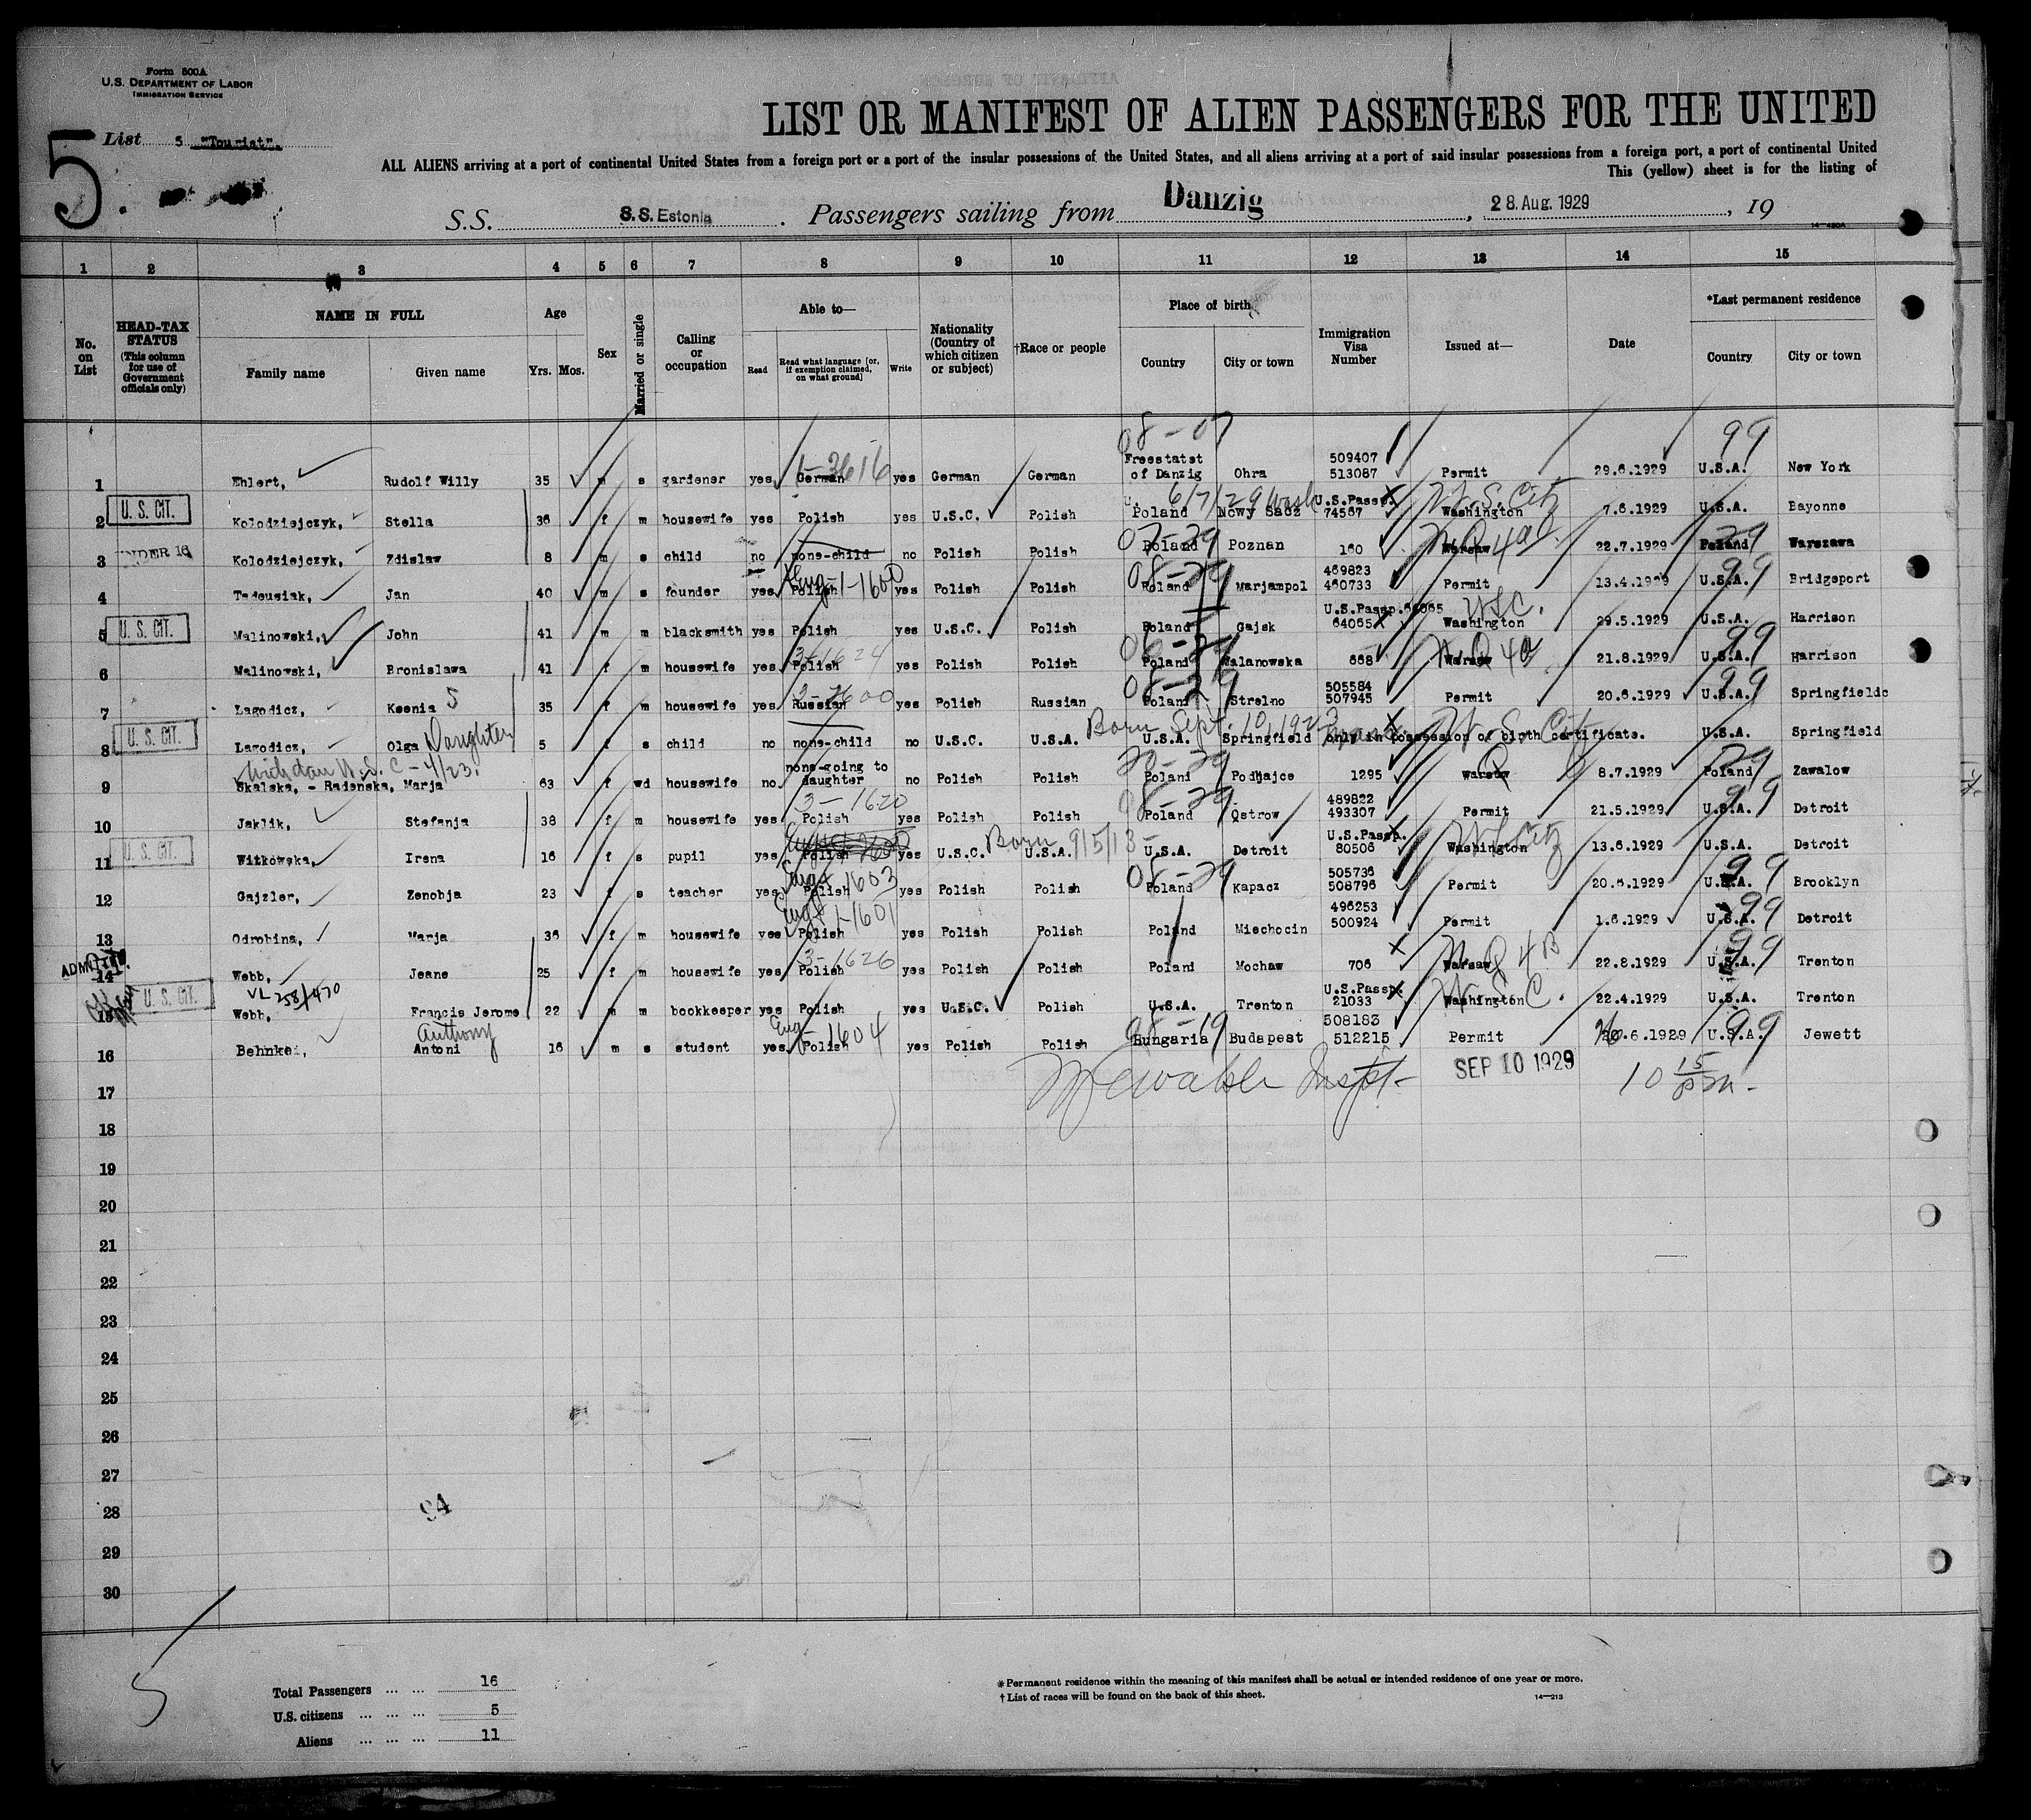 Form 500A
U.S. DEPARTMENT OF LABOR
IMMIGRATION SERVICE
5.
List 5 "Tourist".
LIST OR MANIFEST OF ALIEN PASSENGERS FOR THE UNITED
ALL ALIENS arriving at a port of continental United States from a foreign port or a port of the insular possessions of the United States, and all aliens arriving at a port of said insular possessions from a foreign port, a port of continental United
This (yellow) sheet is for the listing of
S.S. S.S. Estonia. Passengers sailing from Danzig, 28. Aug. 1929, 19
14—480A
1 2 3 4 5 6 7 8 9 10 11 12 13 14 15
No. on List
HEAD-TAX STATUS (This column for use of Government officials only)
NAME IN FULL
Family name Given name
Age
Yrs. Mos.
Sex
Married or single
Calling or occupation
Able to—
Read Read what language [or, if exemption claimed, on what ground] Write
Nationality (Country of which citizen or subject)
†Race or people
Place of birth
Country City or town
Immigration Visa Number
Issued at—
Date
*Last permanent residence
Country City or town
08-07 99
1 Ehlert, Rudolf Willy 35 m s gardener yes German 1-3616 yes German German Freestatst of Danzig Ohra 509407 513087 Permit 29.6.1929 U.S.A. New York
6/7/29 Wash U.S. Citz
2 U. S. CIT. Kolodziejczyk, Stella 36 f m housewife yes Polish yes U.S.C. Polish Poland Nowy Sacz U.S.Passp. 74567 Washington 7.6.1929 U.S.A. Bayonne
3 UNDER 16 Kolodziejczyk, Zdislaw 8 m s child no none-child no Polish Polish Poland Poznan 160 Warsaw 22.7.1929 Poland Warszawa
4 Tadeusiak, Jan 40 m s founder yes Polish Eng-1-1600 yes Polish Polish Poland 08-29 Marjampol 469823 460733 Permit 13.4.1929 U.S.A. 99 Bridgeport
5 U. S. CIT. Malinowski, John 41 m m blacksmith yes Polish yes U.S.C. Polish Poland Gajsk U.S.Passp. 64065 Washington USC. 29.5.1929 U.S.A. Harrison
6 Malinowski, Bronislawa 41 f m housewife yes Polish 3-1624 yes Polish Polish Poland 668 Warsaw 21.8.1929 U.S.A. 99 Harrison
7 Lagodicz, Ksenia 5 35 f m housewife yes Russian yes Polish Russian Poland 08-29 Strelno 505584 507945 Permit 20.6.1929 U.S.A. 99 Springfield
8 U. S. CIT. Lagodicz, Olga Daughter 5 f s child no none-child no U.S.C. U.S.A. U.S.A. Born Sept. 10, 1923 Springfield only in possession of birth certificate. U.S. Citz U.S.A. Springfield
9 Skalska, - Radenska, Marja 63 f wd housewife no none-going to daughter no Polish Polish Poland Podhajce 1295 Warsaw 8.7.1929 Poland 29 Zawalow
10 Jaklik, Stefanja 38 f m housewife yes Polish 3-1620 yes Polish Polish Poland 08-29 Ostrow 489822 493307 Permit 21.5.1929 U.S.A. 99 Detroit
11 U. S. CIT. Witkowska, Irena 16 f s pupil yes Polish yes U.S.C. U.S.A. Born 9/5/13 U.S.A. Detroit U.S.Passp. 80506 Washington US Citz 13.6.1929 U.S.A. Detroit
12 Gajzler, Zenobja 23 f s teacher yes Polish Eng 1603 yes Polish Polish Poland 08-29 Kapacz 505736 508796 Permit 20.6.1929 U.S.A. 99 Brooklyn
13 Odrobina, Marja 36 f m housewife yes Polish Eng 1-1601 yes Polish Polish Poland Miechocin 496253 500924 Permit 1.6.1929 U.S.A. 99 Detroit
14 ADMITTED Webb, Jeane 25 f m housewife yes Polish 3-1626 yes Polish Polish Poland Mochaw 706 Warsaw N.Q 4B 22.8.1929 U.S.A. 99 Trenton
15 U. S. CIT. Webb, VL 258/470 Francis Jerome 22 m m bookkeeper yes Polish yes U.S.C. Polish U.S.A. Trenton U.S.Passp. 21033 Washington U.S.C. 22.4.1929 U.S.A. Trenton
16 Behnkei, Antoni Anthony 16 m s student yes Polish Eng-1604 yes Polish Polish Hungaria Budapest 508183 512215 Permit 20.6.1929 U.S.A. 99 Jewett
Inspt- SEP 10 1929 10 15 pm-
17
18
19
20
21
22
23
24
25
26
27
28
94
29
30
5
Total Passengers ... ... 16
U.S. citizens ... ... ... 5
Aliens ... ... ... 11
*Permanent residence within the meaning of this manifest shall be actual or intended residence of one year or more.
†List of races will be found on the back of this sheet.
14—213